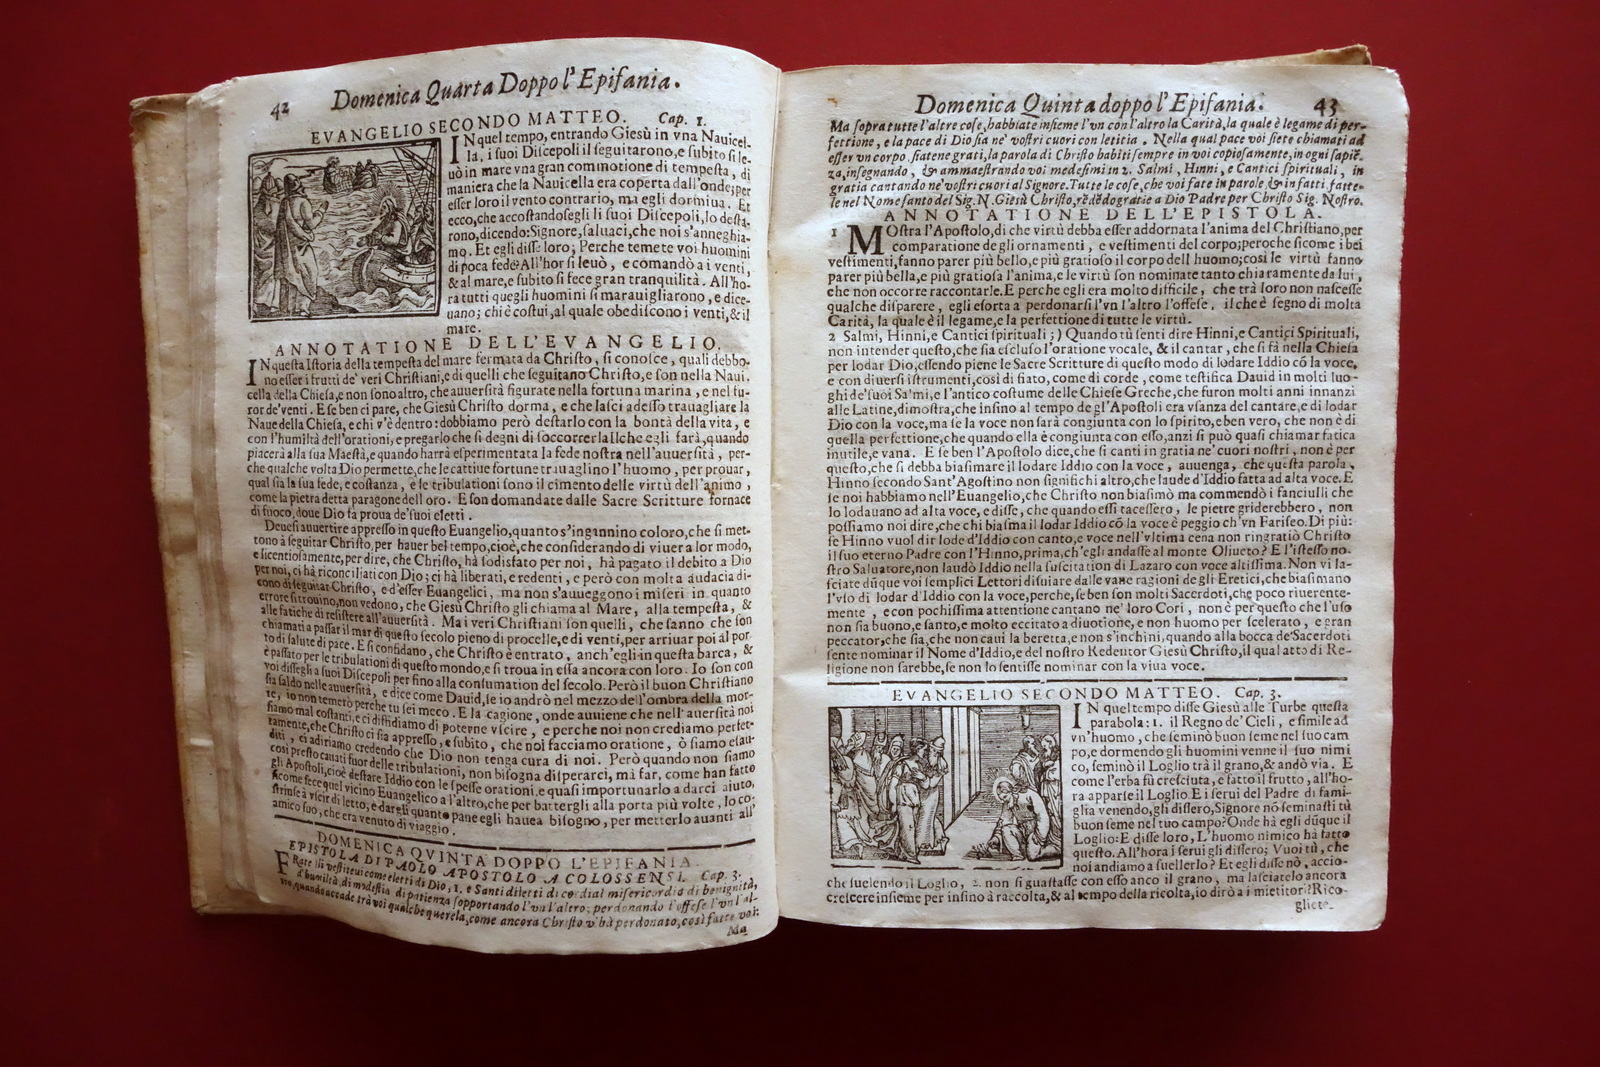 42 Domenica Quarta Doppo l'Epifania.
EVANGELIO SECONDO MATTEO. Cap. 1.
IN quel tempo, entrando Giesù in vna Nauicel-
la, i suoi Discepoli il seguitarono, e subito si le-
uò in mare vna gran commotione di tempesta, di
maniera che la Nauicella era coperta dall'onde; per
esser loro il vento contrario, ma egli dormiua. Et
ecco, che accostandosegli li suoi Discepoli, lo desta-
rono, dicendo: Signore, saluaci, che noi s'anneghia-
mo. Et egli disse loro; Perche temete voi huomini
di poca fede? All'hor si leuò, e comandò a i venti,
& al mare, e subito si fece gran tranquilità. All'ho-
ra tutti quegli huomini si marauigliarono, e dice-
uano; chi è costui, al quale obediscono i venti, & il
mare.
ANNOTATIONE DELL'EVANGELIO.
IN questa Istoria della tempesta del mare fermata da Christo, si conosce, quali debbo-
no esser i frutti de' veri Christiani, e di quelli che seguitano Christo, e son nella Naui-
cella della Chiesa, e non sono altro, che auuersità figurate nella fortuna marina, e nel fu-
ror de' venti. E se ben ci pare, che Giesù Christo dorma, e che lasci adesso trauagliare la
Naue della Chiesa, e chi v'è dentro: dobbiamo però destarlo con la bontà della vita, e
con l'humiltà dell'orationi, e pregarlo che si degni di soccorrerla. Ilche egli farà, quando
piacerà alla sua Maestà, e quando harrà esperimentata la fede nostra nell'auuersità, per-
che qualche volta Dio permette, che le cattiue fortune trauaglino l'huomo, per prouar,
qual sia la sua fede, e costanza, e le tribulationi sono il cimento delle virtù dell'animo,
come la pietra detta paragone dell oro. E son domandate dalle Sacre Scritture fornace
di fuoco, doue Dio fa proua de' suoi eletti.
Deuesi auuertire appresso in questo Euangelio, quanto s'ingannino coloro, che si met-
tono à seguitar Christo, per hauer bel tempo, cioè, che considerando di viuer a lor modo,
e licentiosamente, per dire, che Christo, hà sodisfato per noi, hà pagato il debito a Dio
per noi, ci hà riconciliati con Dio; ci hà liberati, e redenti, e però con molta audacia di-
cono di seguitar Christo, e d'esser Euangelici, ma non s'auueggono i miseri in quanto
errore si trouino, non vedono, che Giesù Christo gli chiama al Mare, alla tempesta, &
alle fatiche di resistere all'auuersità. Ma i veri Christiani son quelli, che sanno che son
chiamati a passar il mar di questo secolo pieno di procelle, e di venti, per arriuar poi al por
to di salute di pace. E si confidano, che Christo è entrato, anch'egli in questa barca, &
è passato per le tribulationi di questo mondo, e si troua in essa ancora con loro. Io son con
voi disse gli a suoi Discepoli per fino alla consumation del secolo. Però il buon Christiano
sia saldo nelle auuersità, e dice come Dauid, se io andrò nel mezzo dell'ombra della mor-
te, io non temerò perche tu sei meco. E la cagione, onde auuiene che nell'auersità noi
siamo mal costanti, e ci diffidiamo di poterne vscire, e perche noi non crediamo perfet-
tamente, che Christo ci sia appresso, e subito, che noi facciamo oratione, ò siamo esau-
diti, ci adiriamo credendo che Dio non tenga cura di noi. Però quando non siamo
così presto cauati fuor delle tribulationi, non bisogna disperarci, ma far, come han fatto
gli Apostoli, cioè destare Iddio con le spesse orationi, e quasi importunarlo a darci aiuto,
sicome fece quel vicino Euangelico a l'altro, che per battergli alla porta più volte, lo co-
strinse à vscir di letto, e dargli quanto pane egli hauea bisogno, per metterlo auanti all'
amico suo, che era venuto di viaggio.
DOMENICA QVINTA DOPPO L'EPIFANIA.
EPISTOLA DI PAOLO APOSTOLO A COLOSSENSI. Cap. 3.
FRate li: vestiteui come eletti di Dio, 1. e Santi diletti di cordial misericordia di benignità,
d'humiltà, di modestia di patienza sopportando l'vn l'altro; perdonando l'offese l'vn l'al-
tro, quando accade trà voi qualche querela, come ancora Christo v'hà perdonato, così fatte voi:
Ma
Domenica Quinta doppo l'Epifania. 43
Ma sopra tutte l'altre cose, habbiate insieme l'vn con l'altro la Carità, la quale è legame di per-
fettione, e la pace di Dio sia ne' vostri cuori con letitia. Nella qual pace voi siete chiamati ad
esser vn corpo. siatene grati, la parola di Christo habiti sempre in voi copiosamente, in ogni sapiẽ-
za, insegnando, & ammaestrando voi medesimi in 2. Salmi, Hinni, e Cantici spirituali, in
gratia cantando ne' vostri cuori al Signore. Tutte le cose, che voi fate in parole, & in fatti, fatte-
le nel Nome santo del Sig. N. Giesù Christo, rẽdẽdo gratie a Dio Padre per Christo Sig. Nostro.
ANNOTATIONE DELL'EPISTOLA.
1 MOstra l'Apostolo, di che virtù debba esser addornata l'anima del Christiano, per
comparatione de gli ornamenti, e vestimenti del corpo; peroche sicome i bei
vestimenti, fanno parer più bello, e più gratioso il corpo dell huomo; così le virtù fanno
parer più bella, e più gratiosa l'anima, e le virtù son nominate tanto chiaramente da lui,
che non occorre raccontarle. E perche egli era molto difficile, che trà loro non nascesse
qualche disparere, egli esorta a perdonarsi l'vn l'altro l'offese, il che è segno di molta
Carità, la quale è il legame, e la perfettione di tutte le virtù.
2 Salmi, Hinni, e Cantici spirituali;) Quando tù senti dire Hinni, e Cantici Spirituali,
non intender questo, che sia escluso l'oratione vocale, & il cantar, che si fà nella Chiesa
per lodar Dio, essendo piene le Sacre Scritture di questo modo di lodare Iddio cõ la voce,
e con diuersi istrumenti, così di fiato, come di corde, come testifica Dauid in molti luo-
ghi de' suoi Salmi, e l'antico costume delle Chiese Greche, che furon molti anni innanzi
alle Latine, dimostra, che insino al tempo de gl'Apostoli era vsanza del cantare, e di lodar
Dio con la voce, ma se la voce non sarà congiunta con lo spirito, e ben vero, che non è di
quella perfettione, che quando ella è congiunta con esso, anzi si può quasi chiamar fatica
inutile, e vana. E se ben l'Apostolo dice, che si canti in gratia ne' cuori nostri, non è per
questo, che si debba biasimare il lodare Iddio con la voce, auuenga, che questa parola,
Hinno secondo Sant'Agostino non significhi altro, che laude d'Iddio fatta ad alta voce. E
se noi habbiamo nell'Euangelio, che Christo non biasimò ma commendò i fanciulli che
lo lodauano ad alta voce, e disse, che quando essi tacessero, le pietre griderebbero, non
possiamo noi dire, che chi biasma il lodar Iddio cõ la voce è peggio ch'vn Fariseo. Di più:
se Hinno vuol dir lode d'Iddio con canto, e voce nell'vltima cena non ringratiò Christo
il suo eterno Padre con l'Hinno, prima, ch'egli andasse al monte Oliueto? E l'istesso no-
stro Saluatore, non laudò Iddio nella suscitation di Lazaro con voce altissima. Non vi la-
sciate dũque voi semplici Lettori disuiare dalle vane ragioni de gli Eretici, che biasimano
l'vso di lodar d'Iddio con la voce, perche, se ben son molti Sacerdoti, che poco riuerente-
mente, e con pochissima attentione cantano ne' loro Cori, non è per questo che l'vso
non sia buono, e santo, e molto eccitato a diuotione, e non huomo per scelerato, e gran
peccator, che sia, che non caui la beretta, e non s'inchini, quando alla bocca de' Sacerdoti
sente nominar il Nome d'Iddio, e del nostro Redentor Giesù Christo, il qual atto di Re-
ligione non sarebbe, se non lo sentisse nominar con la viua voce.
EVANGELIO SECONDO MATTEO. Cap. 3.
IN quel tempo disse Giesù alle Turbe questa
parabola: 1. il Regno de' Cieli, e simile ad
vn'huomo, che seminò buon seme nel suo cam
po, e dormendo gli huomini venne il suo nimi
co, seminò il Loglio trà il grano, & andò via. E
come l'erba fù cresciuta, e fatto il frutto, all'ho-
ra apparse il Loglio. E i serui del Padre di fami-
glia venendo, gli dissero, Signore nõ seminasti tù
buon seme nel tuo campo? Onde hà egli dũque il
Loglio: E disse loro, L'huomo nimico hà fatto
questo. All'hora i serui gli dissero; Vuoi tù, che
noi andiamo a suellerlo? Et egli disse nò, accio-
che suelendo il Loglio, 2. non si guastasse con esso anco il grano, ma lasciatelo ancora
crescere insieme per insino à raccolta, & al tempo della ricolta, io dirò a i mietitori? Rico-
gliete